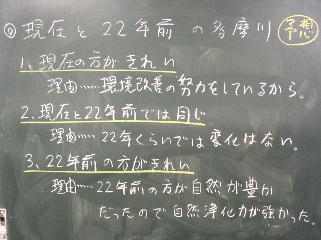 ◎現在と22年前の多摩川 予想
1、現在の方がきれい
理由……環境改善の努力をしているから。
2、現在と22年前では同じ
理由……22年くらいでは変化はない。
3、22年前の方がきれい
理由……22年前の方が自然が豊か
だったので自然浄化力が強かった。